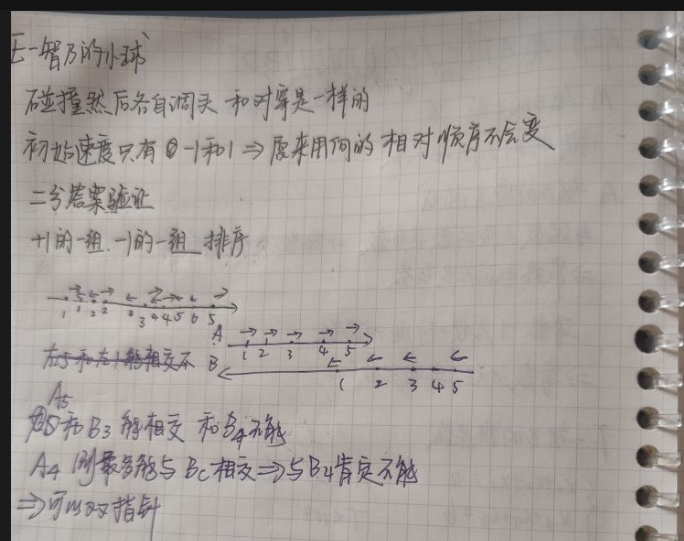 E-智乃的小球
碰撞然后各自调头 和对穿是一样的
初始速度只有 -1和1 ⇒ 原来同向的相对顺序不会变
二分答案验证
+1的一组. -1的一组 排序
1 1 2 2 3 3 4 4 5 6 5
A 1 2 3 4 5
B 1 2 3 4 5
A5
和B3能相交 和B4不能
A4 则最多能与Bc相交⇒与B4肯定不能
⇒可以双指针